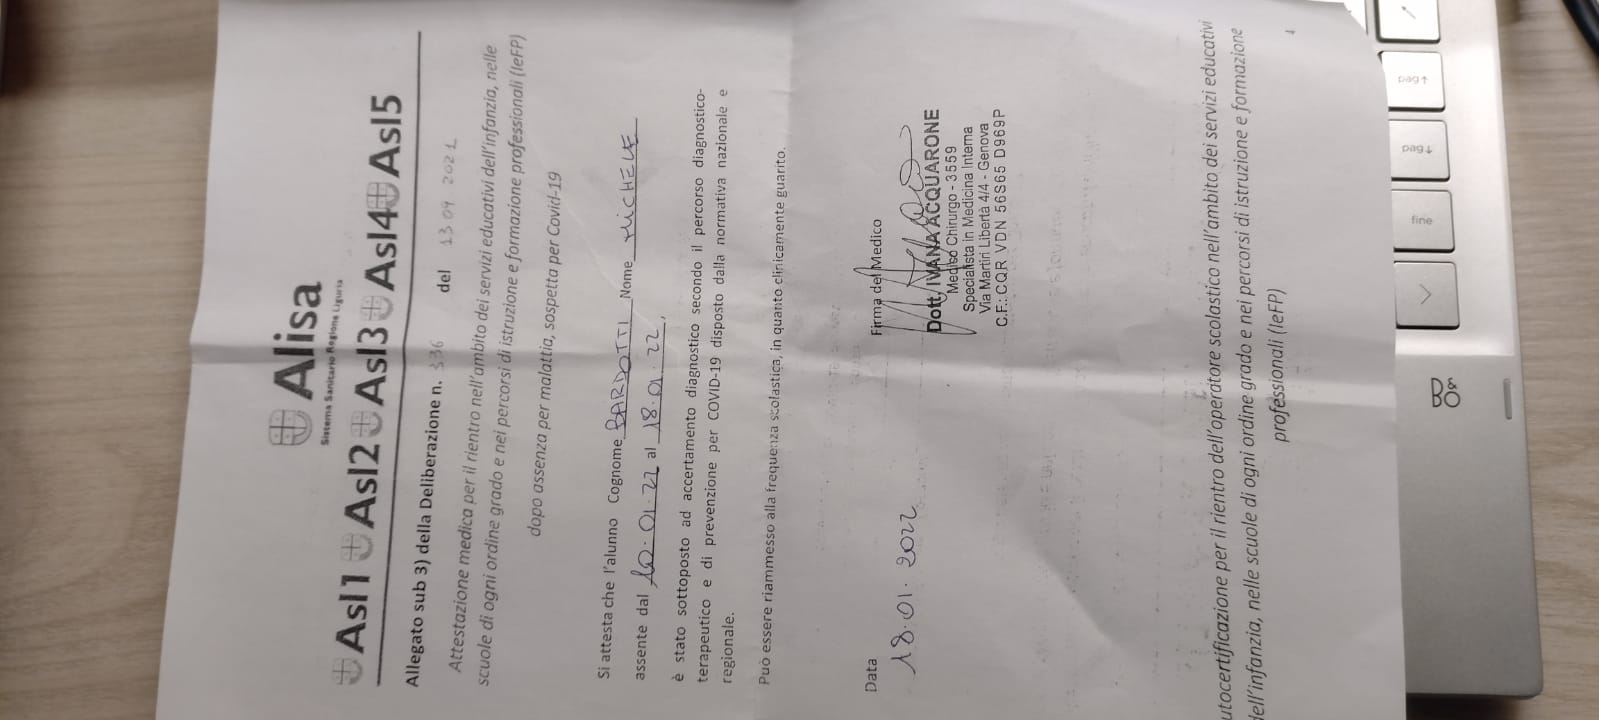 Alisa
Sistema Sanitario Regione Liguria
Asl1 Asl2 Asl3 Asl4 Asl5
Allegato sub 3) della Deliberazione n. 336 del 13 09 2021
Attestazione medica per il rientro nell'ambito dei servizi educativi dell'infanzia, nelle
scuole di ogni ordine grado e nei percorsi di istruzione e formazione professionali (IeFP)
dopo assenza per malattia, sospetta per Covid-19
Si attesta che l'alunno Cognome BARDOTTI Nome MICHELE
assente dal 10.01.22 al 18.01.22,
è stato sottoposto ad accertamento diagnostico secondo il percorso diagnostico-
terapeutico e di prevenzione per COVID-19 disposto dalla normativa nazionale e
regionale.
Può essere riammesso alla frequenza scolastica, in quanto clinicamente guarito.
Data
18.01.2022
Firma del Medico
Dott. IVANA ACQUARONE
Medico Chirurgo - 3559
Specialista in Medicina Interna
Via Martiri Libertà 4/4 - Genova
C.F.: CQR VDN 56S65 D969P
utocertificazione per il rientro dell'operatore scolastico nell'ambito dei servizi educativi
dell'infanzia, nelle scuole di ogni ordine grado e nei percorsi di istruzione e formazione
professionali (IeFP)
pag↑
pag↓
fine
B&O